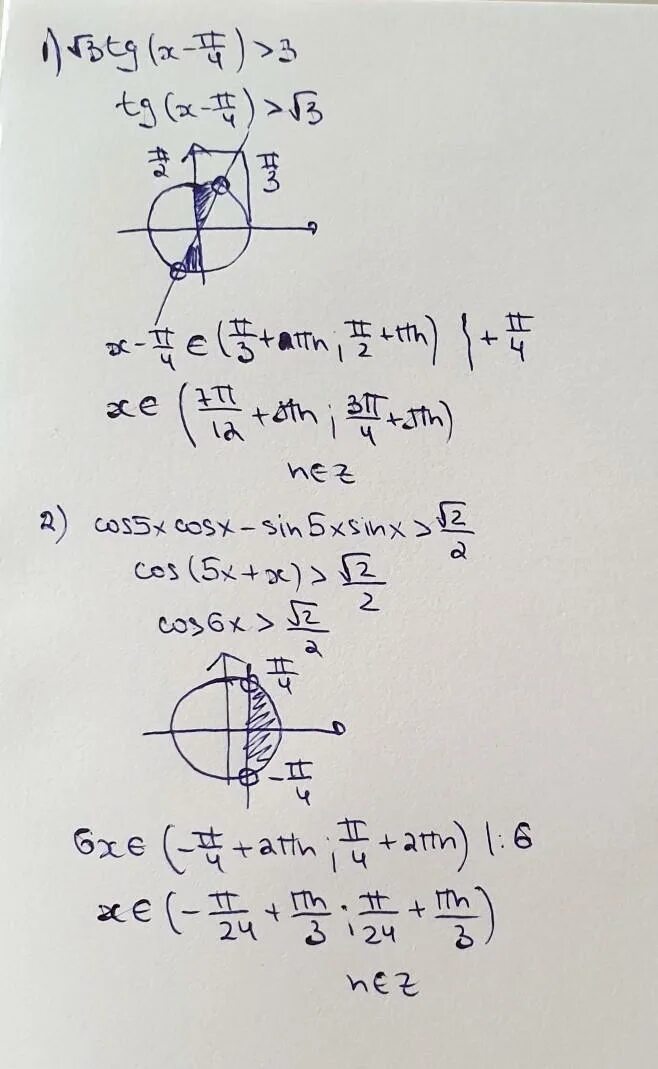 1) √3 tg(x - π/4) > 3
tg(x - π/4) > √3
π/2 π/3
x - π/4 ∈ (π/3 + πn ; π/2 + πn) | + π/4
x ∈ (7π/12 + πn ; 3π/4 + πn)
n∈Z
2) cos5x cosx - sin5x sinx > √2/2
cos(5x + x) > √2/2
cos6x > √2/2
π/4
-π/4
6x ∈ (-π/4 + 2πn ; π/4 + 2πn) |: 6
x ∈ (-π/24 + πn/3 ; π/24 + πn/3)
n∈Z